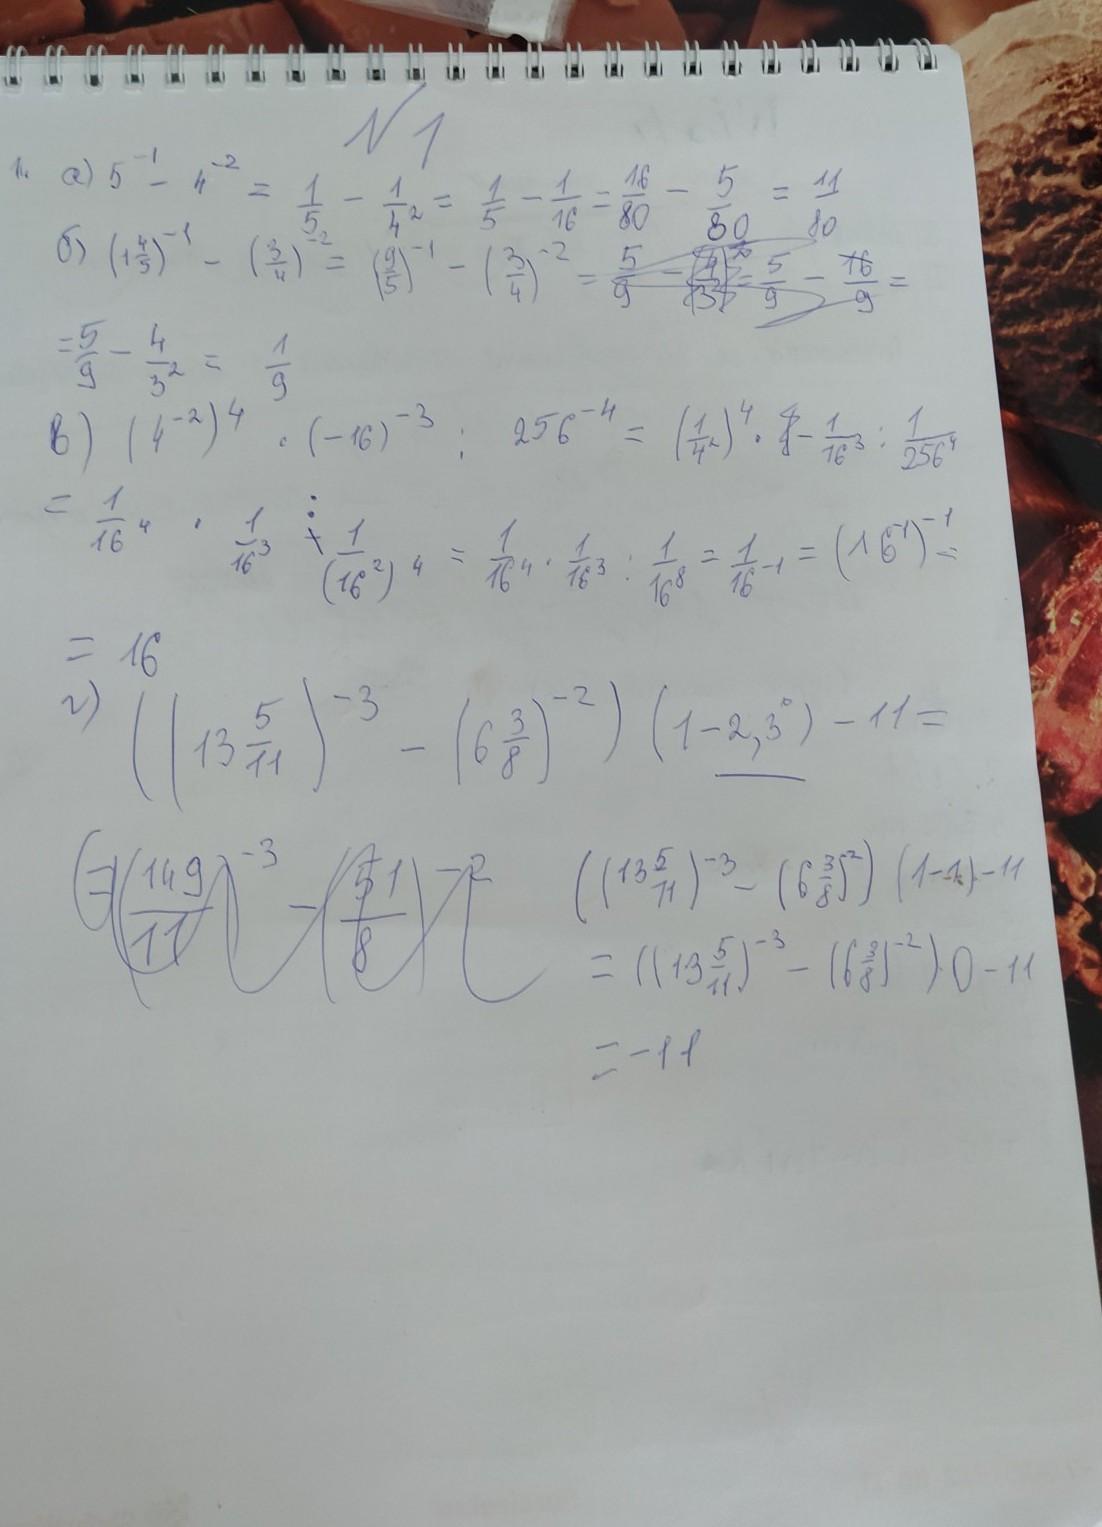 N 1
1. а) 5⁻¹ - 4⁻² = 1/5 - 1/4² = 1/5 - 1/16 = 16/80 - 5/80 = 11/80
б) (1 4/5)⁻¹ - (3/4)⁻² = (9/5)⁻¹ - (3/4)⁻² = 5/9 - (4/3)² = 5/9 - 16/9 =
= 5/9 - 4/3² = 1/9
в) (4⁻²)⁴ · (-16)⁻³ : 256⁻⁴ = (1/4²)⁴ · - 1/16³ : 1/256⁴
= 1/16⁴ · 1/16³ : 1/(16²)⁴ = 1/16⁴ · 1/16³ : 1/16⁸ = 1/16⁻¹ = (16⁻¹)⁻¹ =
= 16
г) ((13 5/11)⁻³ - (6 3/8)⁻²) (1-2,3⁰) - 11 =
= (149/11)⁻³ - (51/8)⁻²
((13 5/11)⁻³ - (6 3/8)⁻²) (1-1) - 11
= ((13 5/11)⁻³ - (6 3/8)⁻²) · 0 - 11
= -11